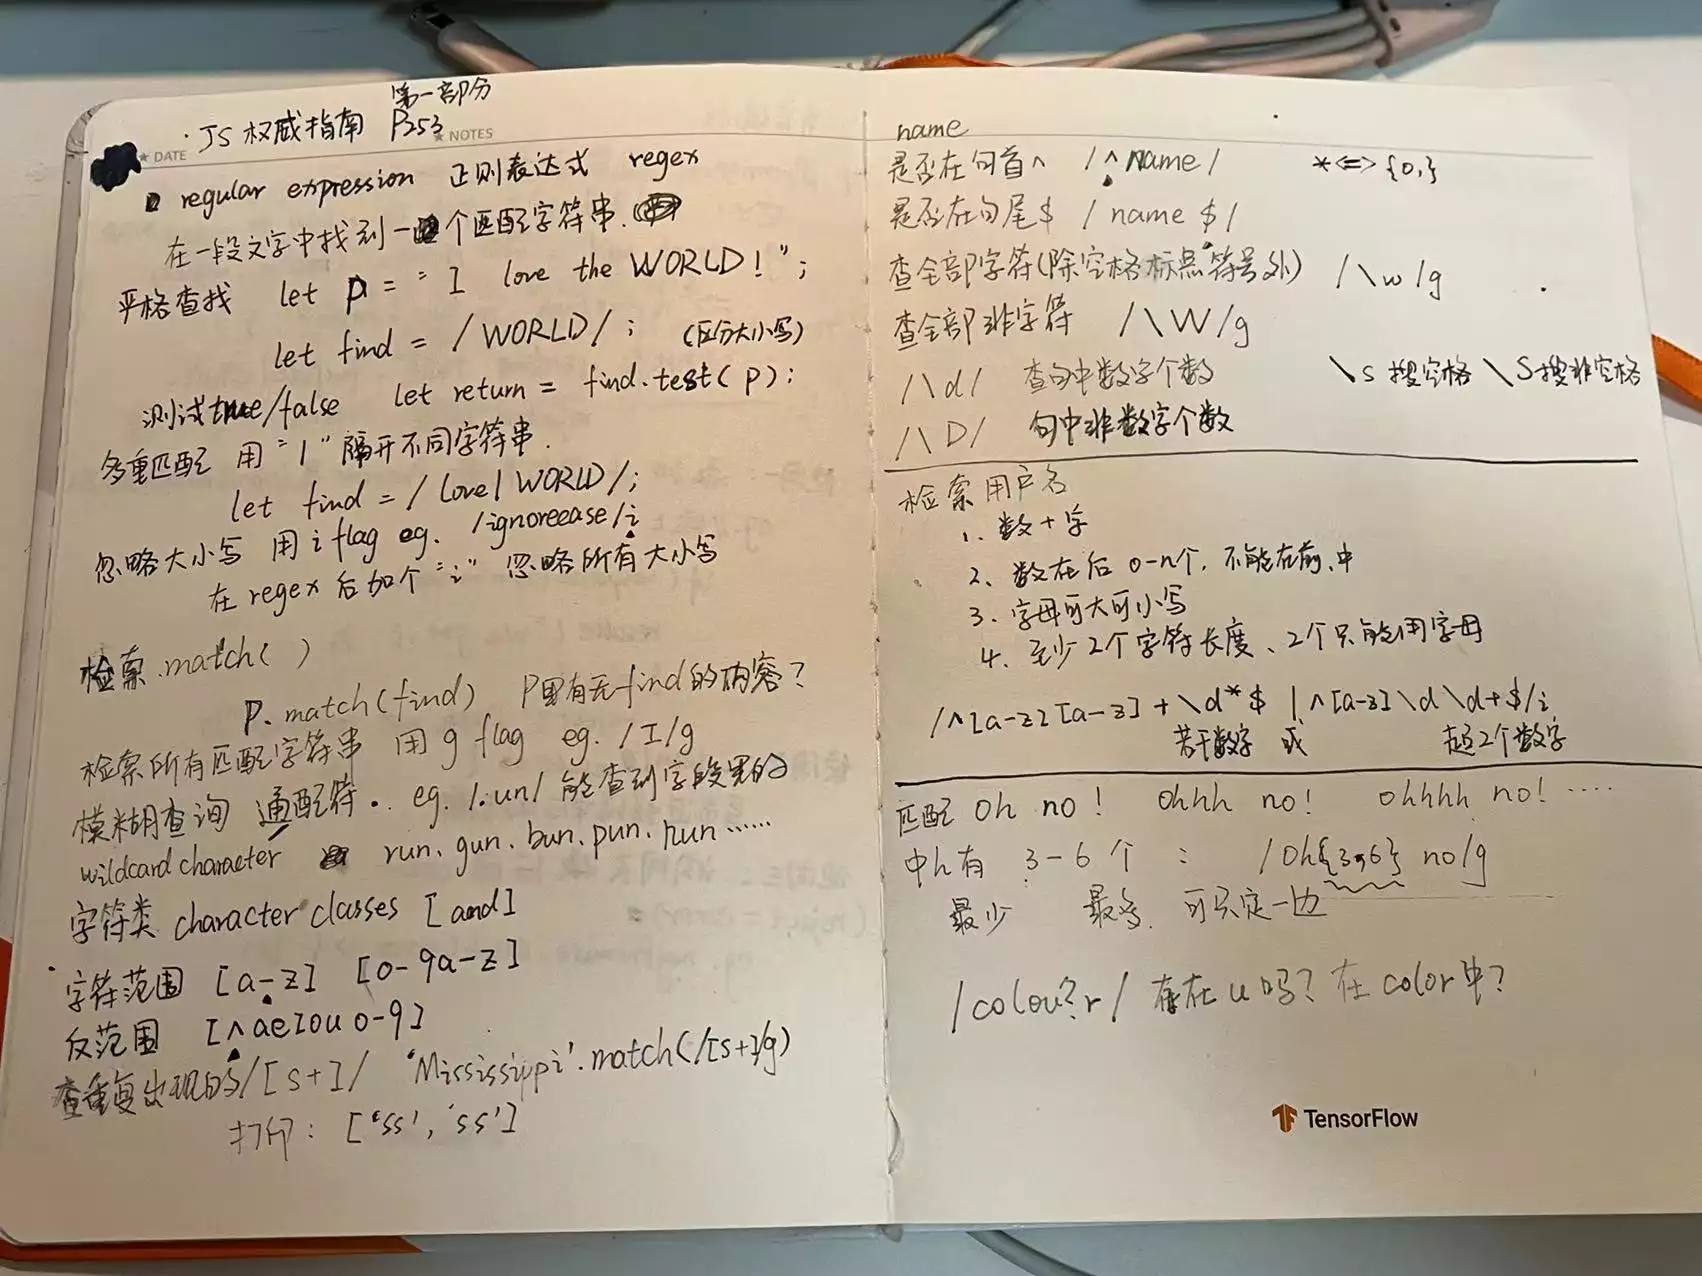 第一部分
· JS 权威指南 P253
DATE
NOTES
regular expression 正则表达式 regex
在一段文字中找到一个匹配字符串.
严格查找 let p = "I love the WORLD!";
let find = /WORLD/; (区分大小写)
测试true/false let return = find.test(p);
多重匹配 用"|"隔开不同字符串.
let find = /love|WORLD/;
忽略大小写 用 i flag eg. /ignoreease/i
在 regex 后加个"i" 忽略所有大小写
检索.match( )
p.match(find) P里有无find的内容?
检索所有匹配字符串 用 g flag eg. /I/g
模糊查询 通配符. eg. /.un/ 能查到字段里的
wildcard character run. gun. bun. pun. nun ......
字符类 character classes [and]
· 字符范围 [a-z] [0-9a-z]
反范围 [^aeIou0-9]
查重复出现的 /[s+]/ 'Mississippi'.match(/[s+]/g)
打印: ['ss', 'ss']
name
是否在句首^ /^name/ *<=>{0,}
是否在句尾$ /name$/
查全部字符(除空格标点符号外) /\w/g
查全部非字符 /\W/g
/\d/ 查句中数字个数 \s 搜空格 \S搜非空格
/\D/ 句中非数字个数
检索用户名
1. 数+字
2、数在后 0-n个, 不能在前、中
3. 字母可大可小写
4. 至少2个字符长度、2个只能用字母
/^[a-z][a-z]+\d*$|^[a-z]\d\d+$/i
若干数字 或 超2个数字
匹配 Oh no! Ohhh no! Ohhhh no! ....
中h有 3-6个: /Oh{3,6} no/g
最少 最多. 可只定一边
/colou?r/ 存在u吗? 在color中?
TensorFlow